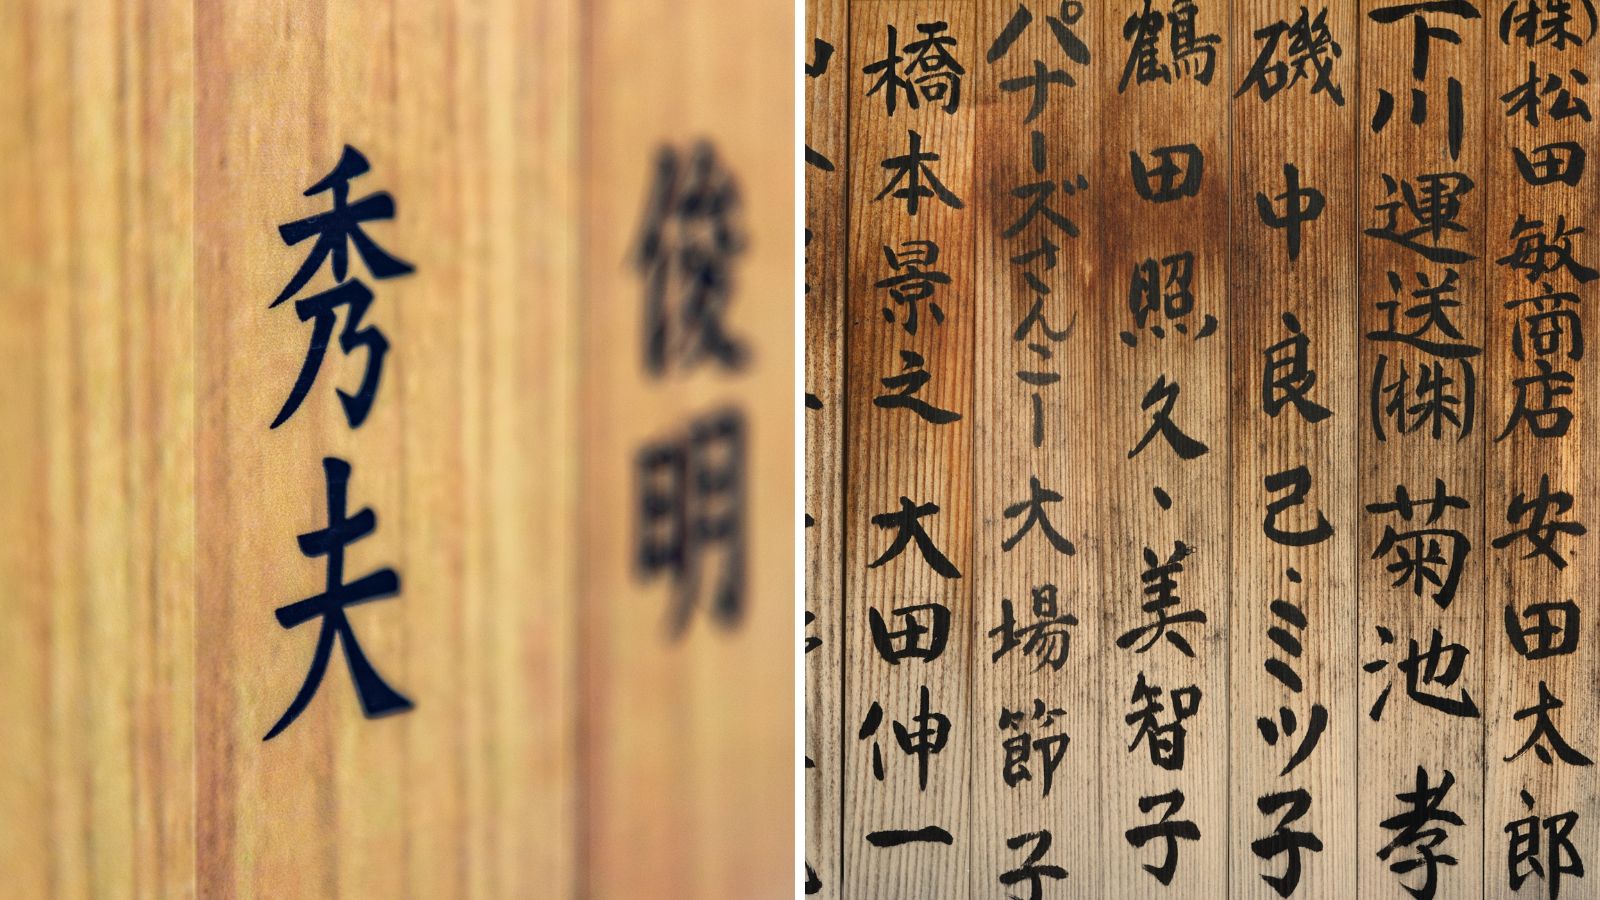 俊明
秀夫
(株)松田敏商店 安田太郎
下川運送(株) 菊池 孝
磯中良己、ミツ子
鶴田照久、美智子
パナーズさんこー 大場節子
橋本景之 大田伸一